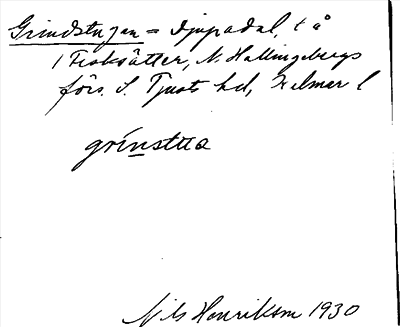 Grindstugan = Djupadal, t å
1 Fisksätter, N. Hallingebergs
förs. S. Tjusts hd, Kalmar l
grinstua
Nils Henriksm 1930